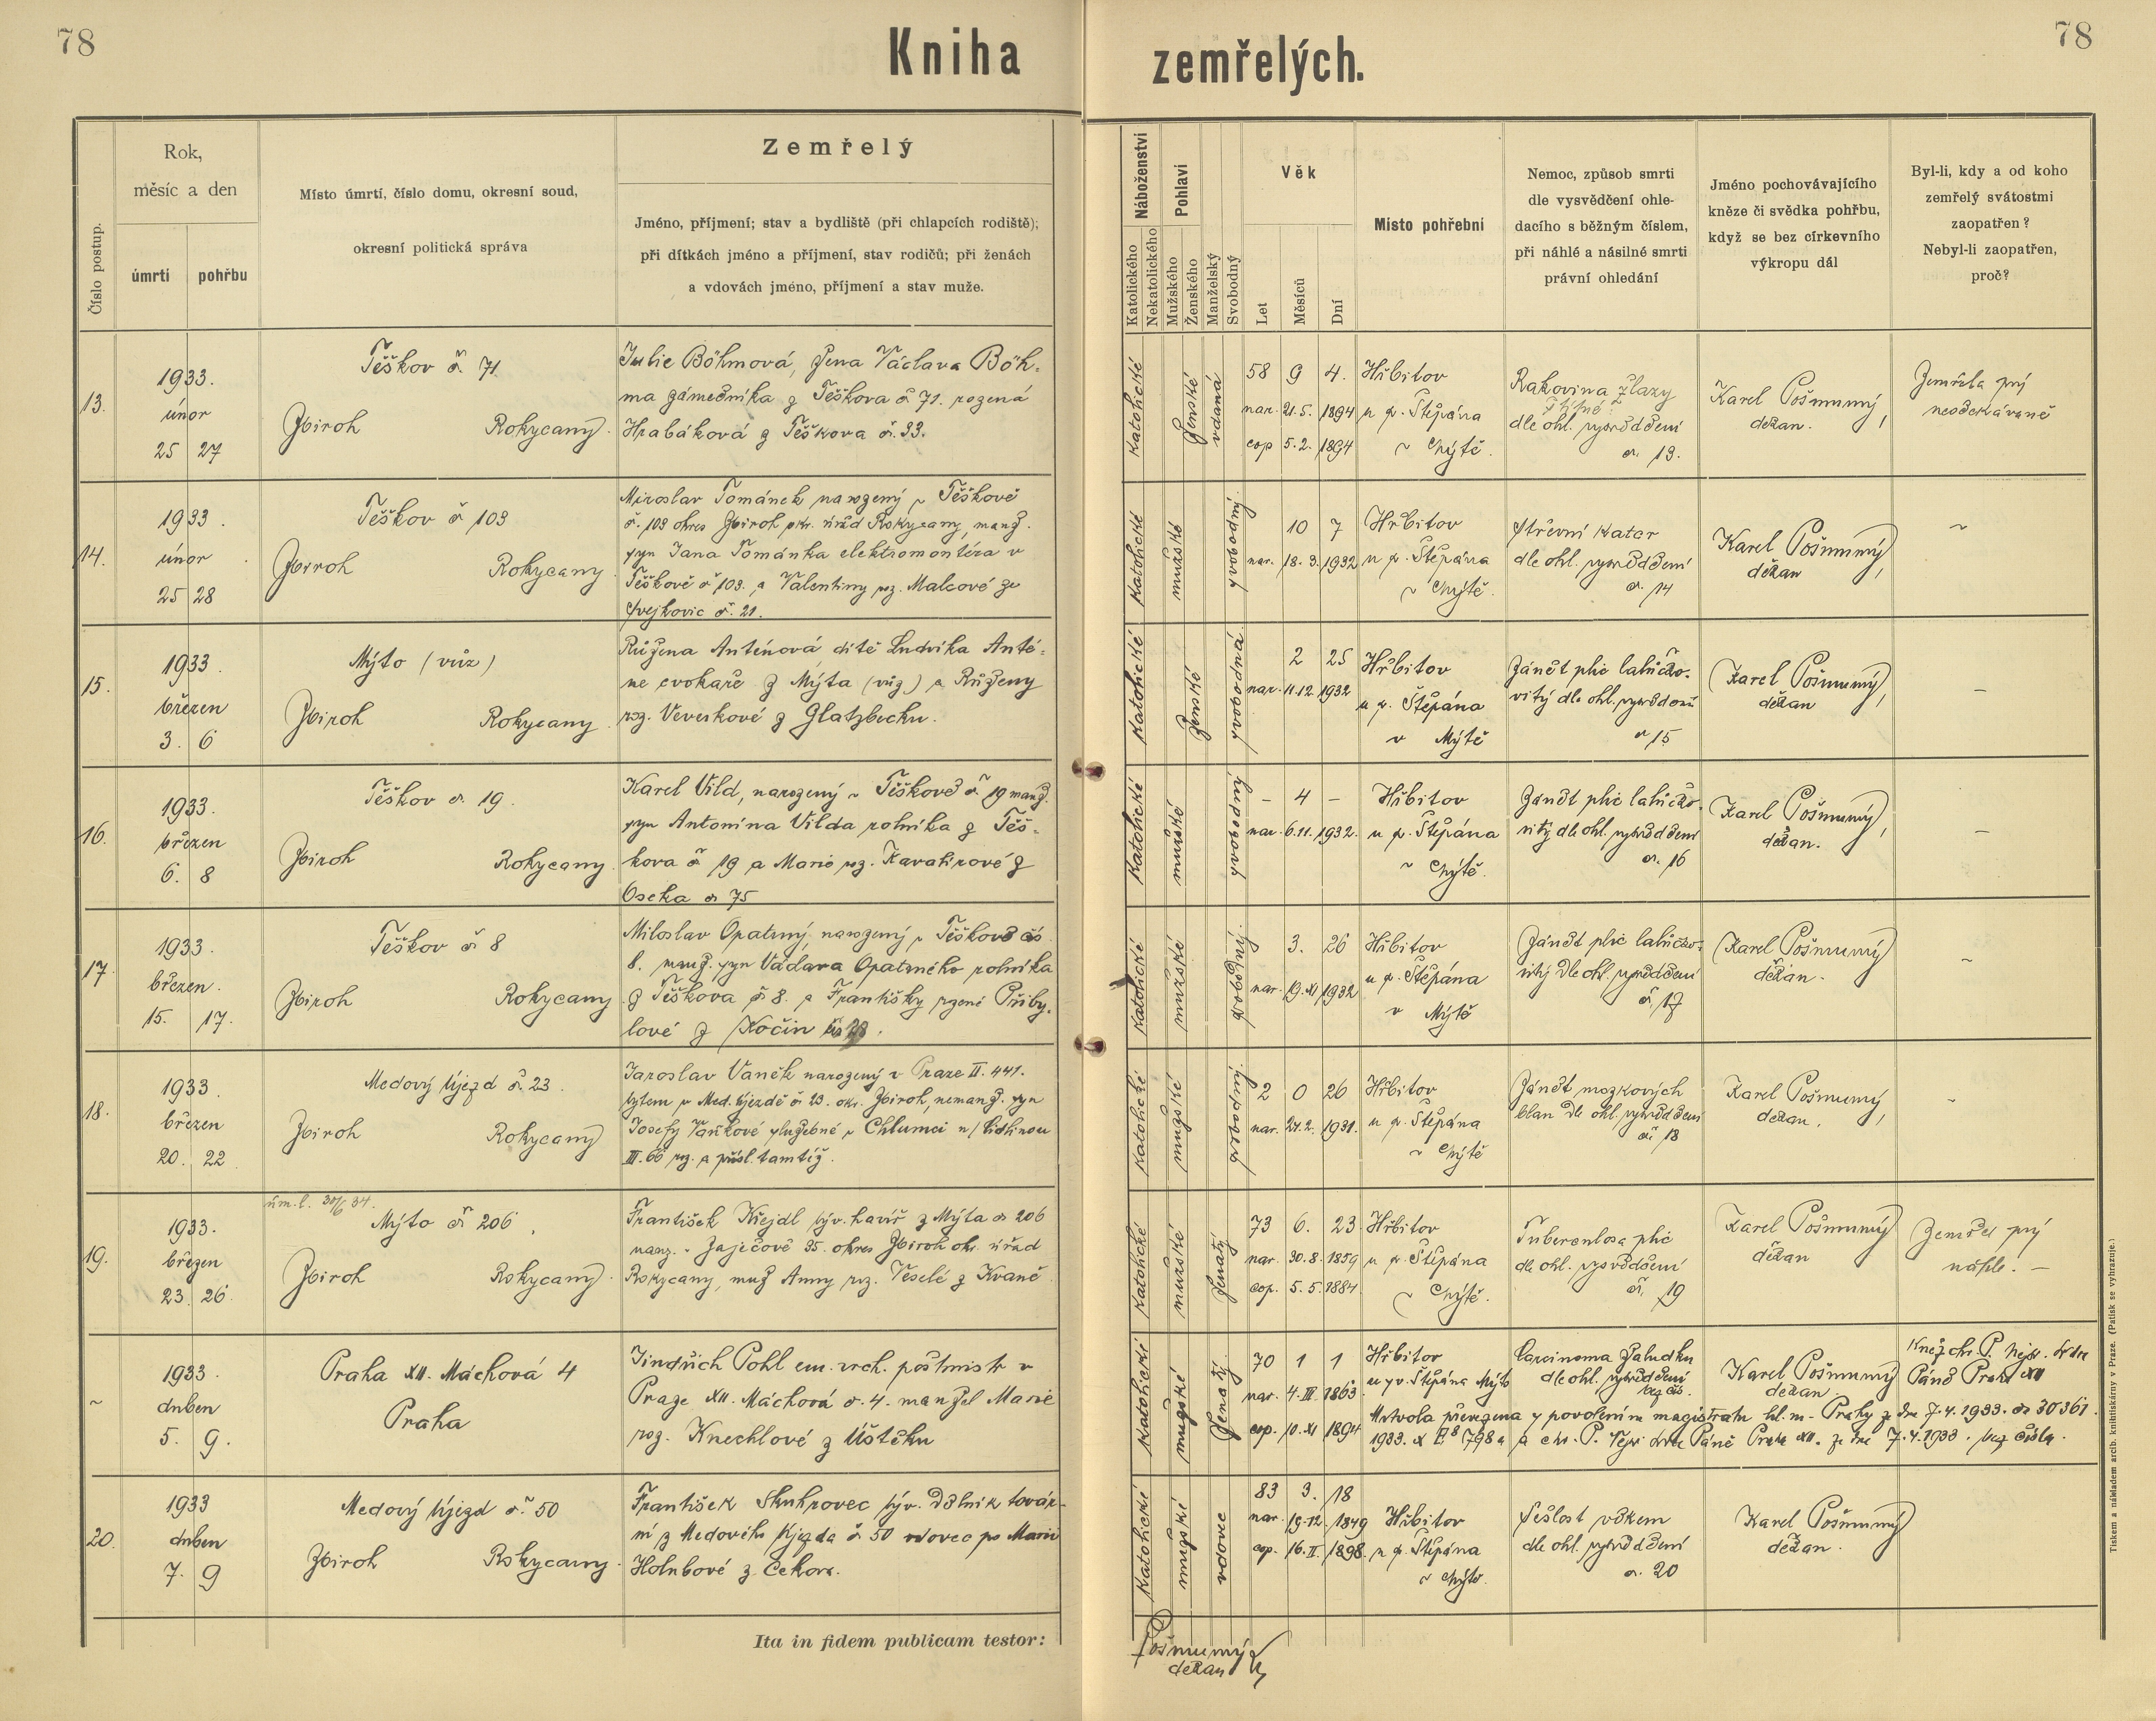 78
Kniha zemřelých.
78
Číslo postup.
Rok,
měsíc a den
úmrtí
pohřbu
Místo úmrtí, číslo domu, okresní soud,
okresní politická správa
Zemřelý
Jméno, příjmení; stav a bydliště (při chlapcích rodiště);
při dítkách jméno a příjmení, stav rodičů; při ženách
a vdovách jméno, příjmení a stav muže.
Náboženství
Katolického
Nekatolického
Pohlaví
Mužského
Ženského
Manželský
Svobodný
Věk
Let
Měsíců
Dní
Místo pohřební
Nemoc, způsob smrti
dle vysvědčení ohle-
dacího s běžným číslem,
při náhlé a násilné smrti
právní ohledání
Jméno pochovávajícího
kněze či svědka pohřbu,
když se bez církevního
výkropu dál
Byl-li, kdy a od koho
zemřelý svátostmi
zaopatřen?
Nebyl-li zaopatřen,
proč?
13.
1933.
únor
25 27
Těškov č. 71
Zbiroh Rokycany.
Julie Böhmová, žena Václava Böh-
ma zámečníka z Těškova č. 71. rozená
Hrabáková z Těškova č. 33.
katolické
ženské
vdaná
58 9 4.
nar. 21. 5. 1894
cop. 5. 2. 1894
Hřbitov
u sv. Štěpána
v Mýtě.
Rakovina žlazy
štítné
dle ohl. vysvědčení
č. 13.
Karel Pošmurný,
děkan.
Zemřela prý
neočekávaně
14.
1933.
únor
25 28
Těškov č. 103
Zbiroh Rokycany
Miroslav Tománek narozený v Těškově
č. 103 okres Zbiroh okr. úřad Rokycany, manž.
syn Jana Tománka elektromontéra v
Těškově č. 103. a Valentiny roz. Malcové ze
Svejkovic č. 21.
katolické
mužské
svobodný.
10 7
nar. 18. 3. 1932
Hřbitov
u sv. Štěpána
v Mýtě.
střevní katar
dle ohl. vysvědčení
č. 14
Karel Pošmurný,
děkan
~
15.
1933.
březen
3. 6
Mýto (vůz)
Zbiroh Rokycany.
Růžena Anténová, dítě Ludvíka Anté-
ne cvokaře z Mýta (vůz) a Růženy
roz. Veverkové z Glatzbecku.
katolické
ženské
svobodná.
2 25
nar. 11. 12. 1932
Hřbitov
u sv. Štěpána
v Mýtě
Zánět plic lalůčko-
vitý dle ohl. vysvědčení
č. 15
Karel Pošmurný,
děkan
–
16.
1933.
březen
6. 8
Těškov č. 19.
Zbiroh Rokycany.
Karel Vild, narozený v Těškově č. 19 manž.
syn Antonína Vilda rolníka z Těš-
kova č. 19 a Marie roz. Kavalírové z
Oseka č. 75
katolické
mužské
svobodný
– 4 –
nar. 6. 11. 1932.
Hřbitov
u sv. Štěpána
v Mýtě.
Zánět plic lalůčko-
vitý dle ohl. vysvědčení
č. 16
Karel Pošmurný,
děkan.
–
17.
1933.
březen.
15. 17.
Těškov č. 8
Zbiroh Rokycany
Miloslav Opatrný, narozený v Těškově čís.
8. manž. syn Václava Opatrného rolníka
z Těškova č. 8. a Františky rozené Přiby-
lové z Kočin
katolické
mužské
svobodný.
3. 26
nar. 19. XI 1932
Hřbitov
u sv. Štěpána
v Mýtě
Zánět plic lalůčko-
vitý dle ohl. vysvědčení
č. 17
Karel Pošmurný
děkan.
~
18.
1933
březen
20. 22
Medový Újezd č. 23.
Zbiroh Rokycany
Jaroslav Vaněk narozený v Praze II. 441.
bytem v Med. Újezdě č. 23. okr. Zbiroh, nemanž. syn
Josefy Vaňkové služebné v Chlumci n/ Cidlinou
III. 66 roz. a přísl. tamtéž.
katolické
mužské
svobodný.
2 0 26
nar. 24. 2. 1931.
Hřbitov
u sv. Štěpána
v Mýtě
Zánět mozkových
blan dle ohl. vysvědčení
č. 18
Karel Pošmurný,
děkan.
-
19.
1933.
březen
23. 26
úm. l. 30/6 34.
Mýto č. 206
Zbiroh Rokycany.
František Křejdl býv. havíř z Mýta č. 206
naroz. v Zaječově 35. okres Zbiroh okr. úřad
Rokycany, muž Anny roz. Veselé z Kvaně
katolické
mužské
ženatý
73 6. 23
nar. 30. 8. 1859
cop. 5. 5. 1884
Hřbitov
u sv. Štěpána
v Mýtě.
Tuberculosa plic
dle ohl. vysvědčení
č. 19
Karel Pošmurný
děkan
Zemřel prý
náhle. –
~
1933.
duben
5. 9.
Praha XII. Máchová 4
Praha
Jindřich Pohl em. vrch. poštmistr v
Praze XII. Máchová č. 4. manžel Marie
roz. Knechlové z Úštěku
katolické
mužské
ženatý.
70 1 1
nar. 4. III. 1863
cop. 10. XI 1894
Hřbitov
u sv. Štěpána Mýto
Carcinoma žaludku
dle ohl. vysvědčení
bez čís.
Karel Pošmurný
děkan.
Kněz chr. P. Nejsv. Srdce
Páně Praha XII
Mrtvola převezena s povolením magistrátu hl. m. Prahy ze dne 7. 4. 1933. čs 30361.
1933. a chr. P. Nejsv. Srdce Páně Praha XII. ze dne 7. 4. 1933. bez čísla.
20.
1933
duben
7. 9
Medový Újezd č. 50
Zbiroh Rokycany.
František Skuhrovec býv. dělník továr-
ní z Medového Újezda č. 50 vdovec po Marii
Holubové z Čekova.
katolické
mužské
vdovec
83 3. 18
nar. 19. 12. 1849
cop. 16. II. 1898.
Hřbitov
u sv. Štěpána
v Mýtě.
Sešlost věkem
dle ohl. vysvědčení
č. 20
Karel Pošmurný
děkan.
Ita in fidem publicam testor:
Pošmurný
děkan
Tiskem a nákladem arcib. knihtiskárny v Praze. (Patisk se vyhrazuje.)